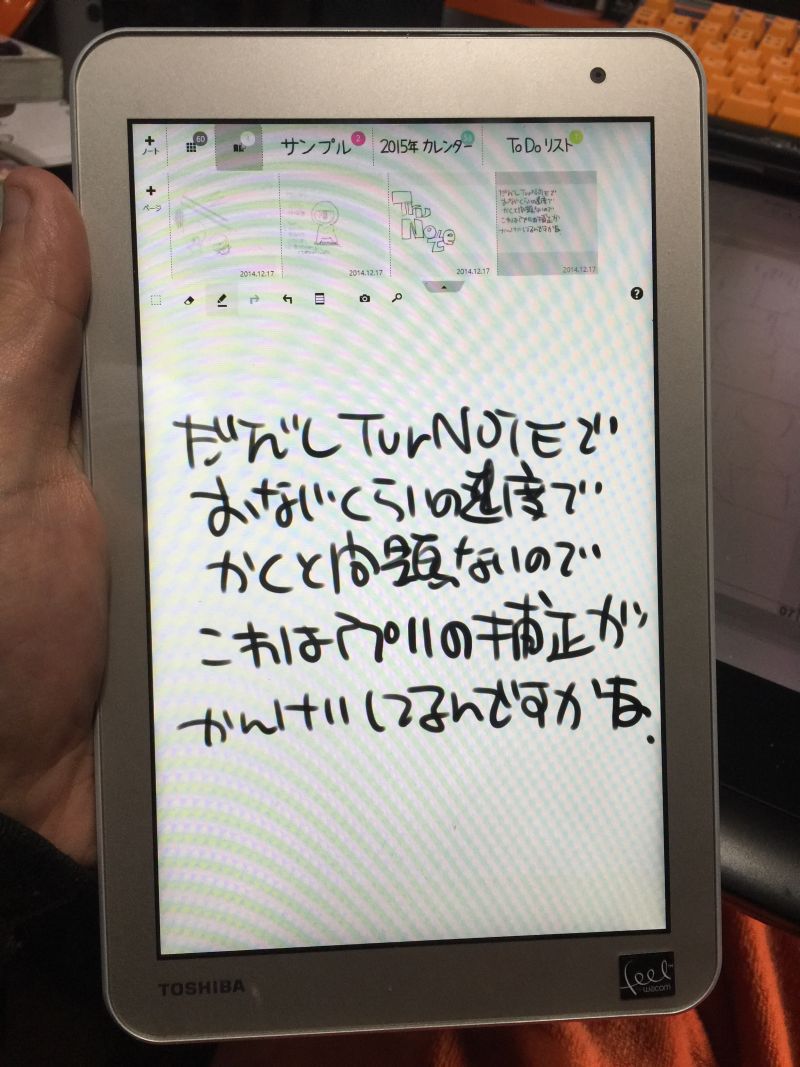 ノート
60
サンプル 2
2015年 カレンダー
ToDo リスト
ページ
2014.12.17
2014.12.17
2014.12.17
2014.12.17
TurNOTEで
おないくらいの速度で
かくと問題ないので
これはアプリの補正が
かんけいしてるんですかね.
TOSHIBA
feel
wacom